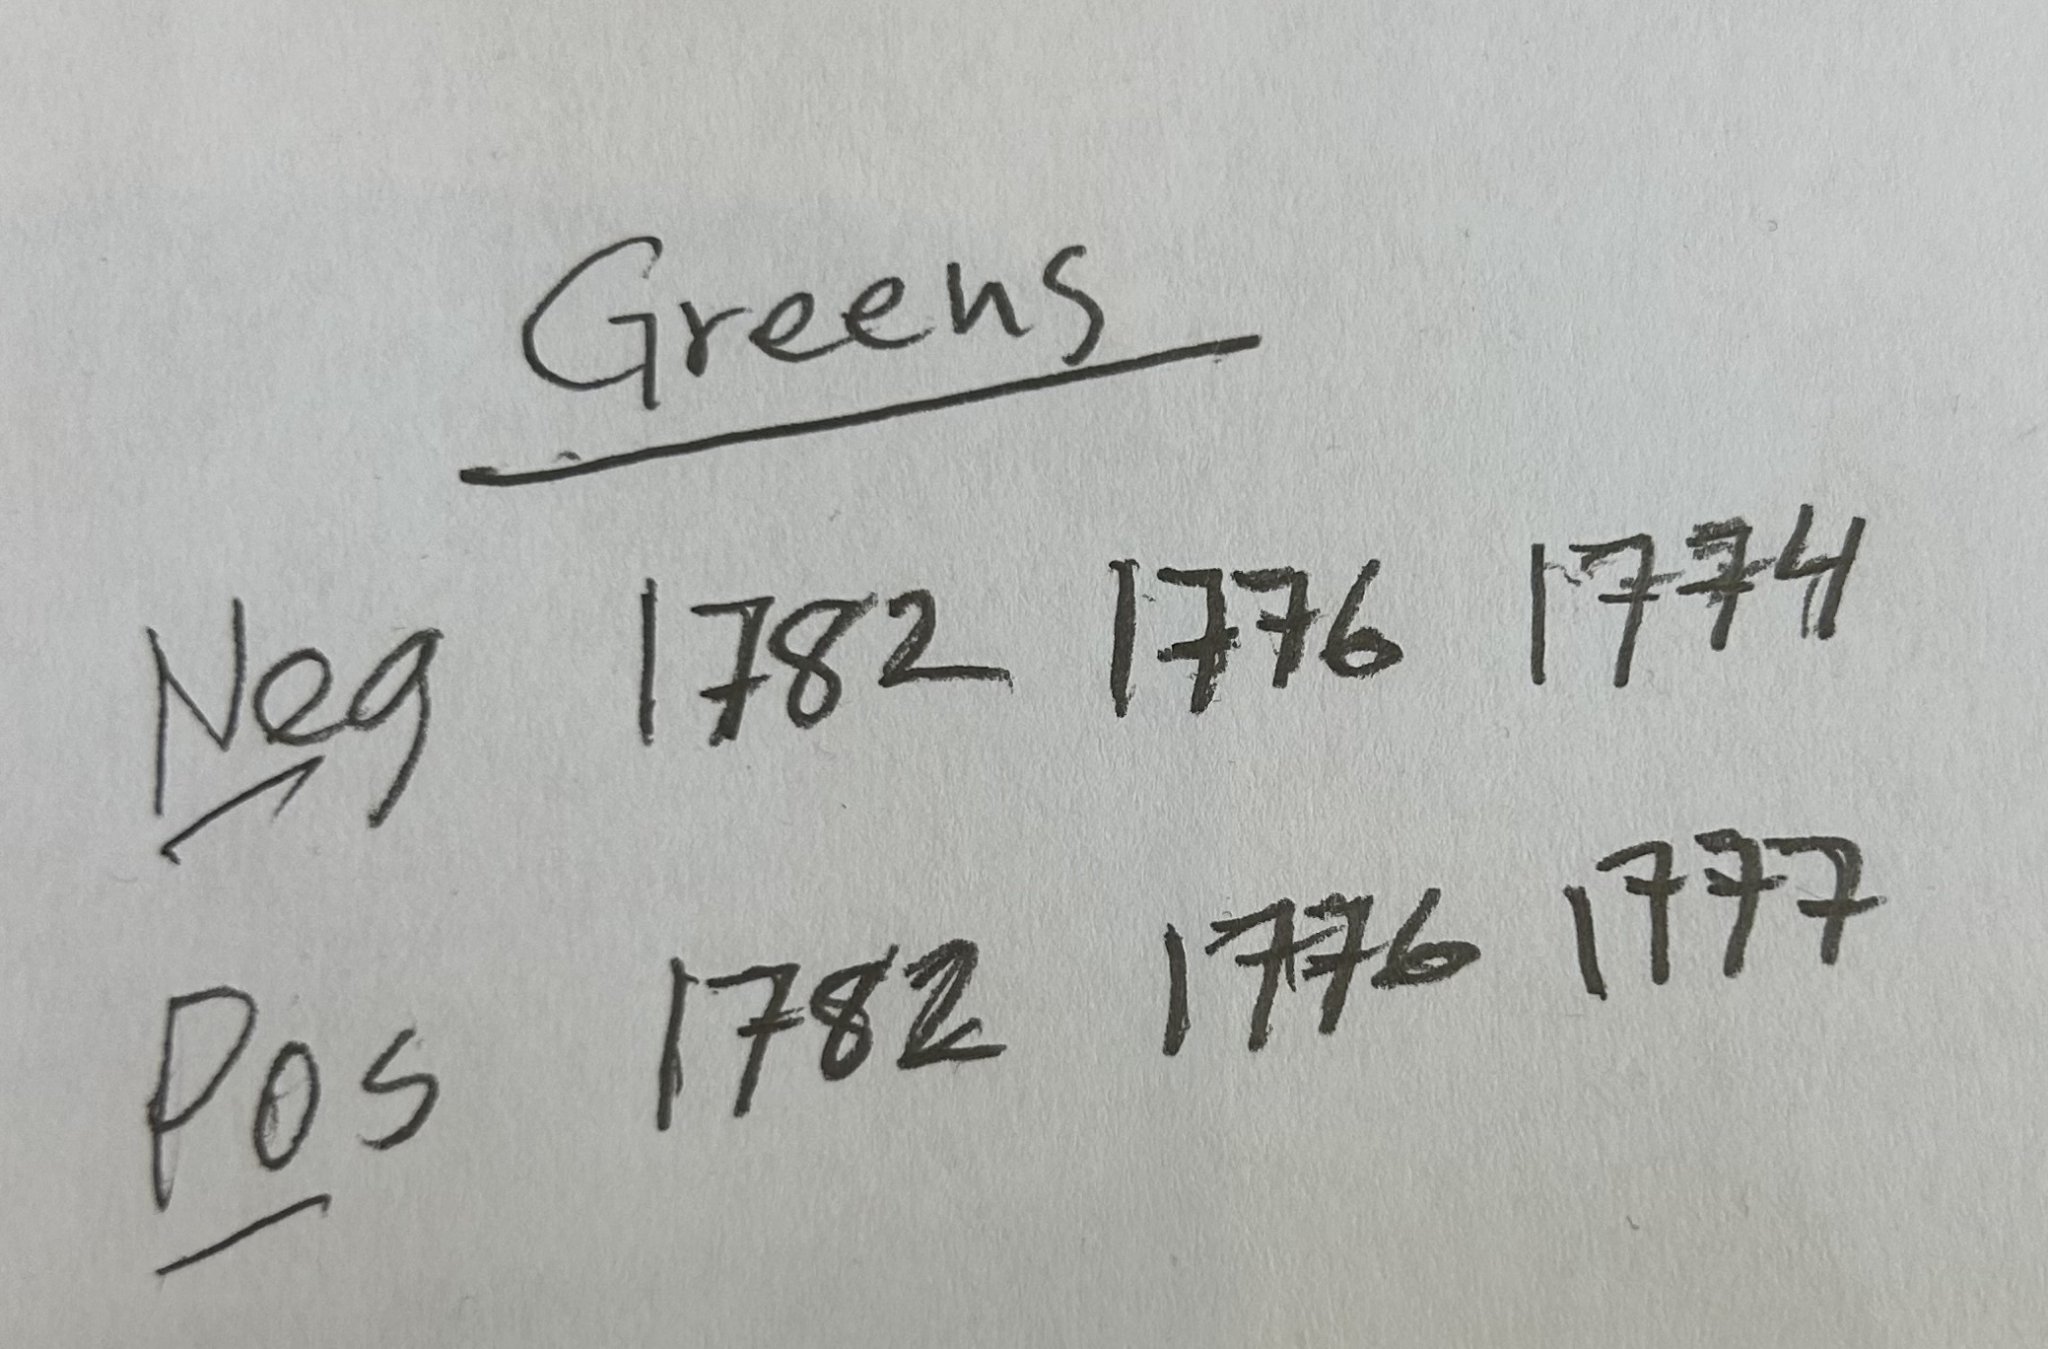 Greens
Neg 1782 1776 1774
Pos 1782 1776 1777